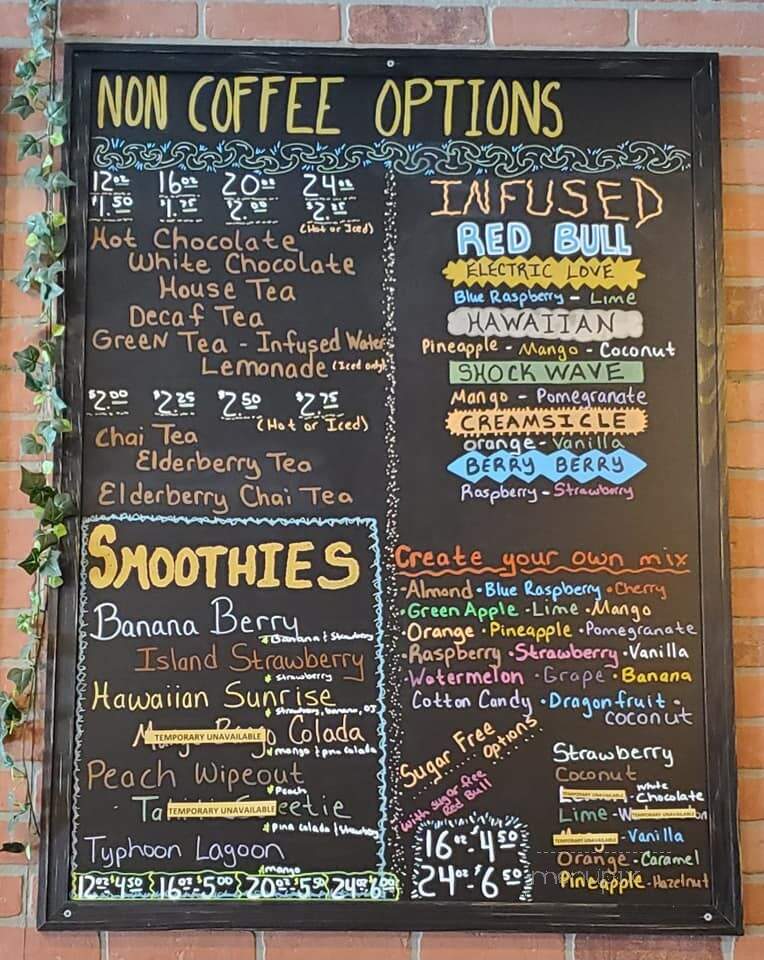 NON COFFEE OPTIONS
12oz 16oz 20oz 24oz
$1.50 $1.75 $2.00 $2.25
(Hot or Iced)
Hot Chocolate
White Chocolate
House Tea
Decaf Tea
Green Tea - Infused Water
Lemonade (Iced only)
$2.00 $2.25 $2.50 $2.75
(Hot or Iced)
Chai Tea
Elderberry Tea
Elderberry Chai Tea
SMOOTHIES
Banana Berry
Banana & Strawberry
Island Strawberry
strawberry
Hawaiian Sunrise
Strawberry, Banana, OJ
Colada
TEMPORARY UNAVAILABLE
mango & pina colada
Peach Wipeout
Peach
TEMPORARY UNAVAILABLE
pina colada & strawberry
Typhoon Lagoon
mango
12oz $4.50 16oz $5.00 20oz $5.50 24oz $6.00
INFUSED
RED BULL
ELECTRIC LOVE
Blue Raspberry - Lime
HAWAIIAN
Pineapple - Mango - Coconut
SHOCK WAVE
Mango - Pomegranate
CREAMSICLE
orange - Vanilla
BERRY BERRY
Raspberry - Strawberry
Create your own mix
·Almond ·Blue Raspberry ·Cherry
·Green Apple ·Lime ·Mango
·Orange ·Pineapple ·Pomegranate
·Raspberry ·Strawberry ·Vanilla
·Watermelon ·Grape ·Banana
Cotton Candy ·Dragonfruit ·
coconut
Sugar Free
Options
with sugar free
Red Bull
16oz - 4.50
24oz - 6.50
Strawberry
Coconut
TEMPORARY UNAVAILABLE white
Chocolate
Lime - TEMPORARY UNAVAILABLE
TEMPORARY UNAVAILABLE - Vanilla
Orange - Caramel
Pineapple - Hazelnut
menupix